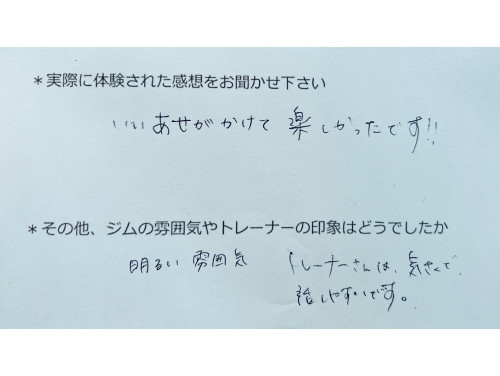 ＊実際に体験された感想をお聞かせ下さい
いいあせがかけて楽しかったです!!
＊その他、ジムの雰囲気やトレーナーの印象はどうでしたか
明るい雰囲気 トレーナーさんは、気さくで
話しやすいです。